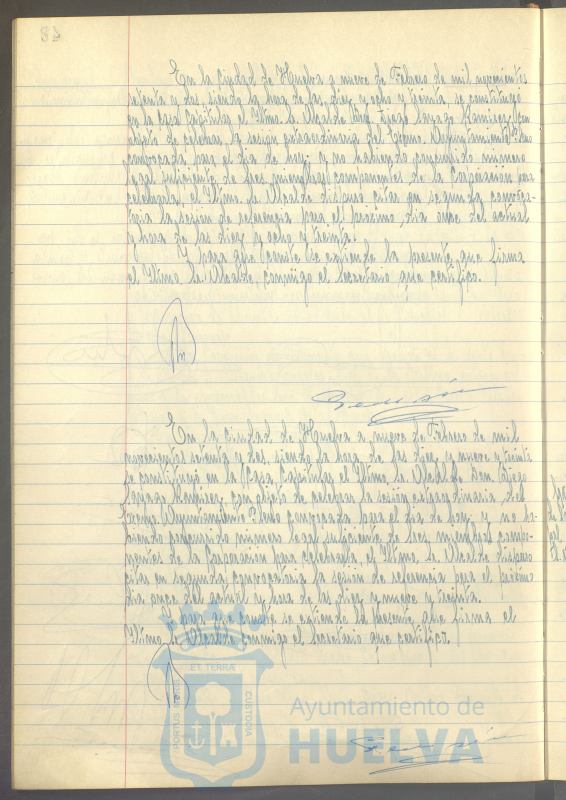 En la ciudad de Huelva a nueve de Febrero de mil novecientos
setenta y dos, siendo la hora de las diez y ocho y treinta se constituyó
en la Casa Capitular el Iltmo. Sr. Alcalde Don Diego Lozano Ramírez, con
objeto de celebrar la sesión extraordinaria del Excmo. Ayuntamiento Pleno
convocada para el día de hoy y no habiendo concurrido número
legal suficiente de Sres. miembros componentes de la Corporación para
celebrarla, el Iltmo. Sr. Alcalde dispuso citar en segunda convoca-
toria la sesión de referencia para el próximo día once del actual
y hora de las diez y ocho y treinta.
Y para que conste se extiende la presente, que firma
el Iltmo. Sr. Alcalde, conmigo el Secretario que certifico.
En la ciudad de Huelva a nueve de Febrero de mil
novecientos setenta y dos, siendo la hora de las diez y nueve y treinta
se constituyó en la Casa Capitular el Iltmo. Sr. Alcalde Don Diego
Lozano Ramírez, con objeto de celebrar la sesión extraordinaria del
Excmo. Ayuntamiento Pleno convocada para el día de hoy y no ha-
biendo concurrido número legal suficiente de Sres. miembros compo-
nentes de la Corporación para celebrarla, el Iltmo. Sr. Alcalde dispuso
citar en segunda convocatoria la sesión de referencia para el próximo
día once del actual y hora de las diez y nueve y treinta.
Y para que conste se extiende la presente, que firma el
Iltmo. Sr. Alcalde conmigo el Secretario que certifico.
ET TERRA
PORTUS MARIS
CUSTODIA
Ayuntamiento de
HUELVA